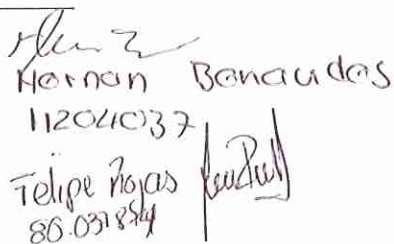 Hernan Benavides
11204037
Felipe Rojas
86.037854